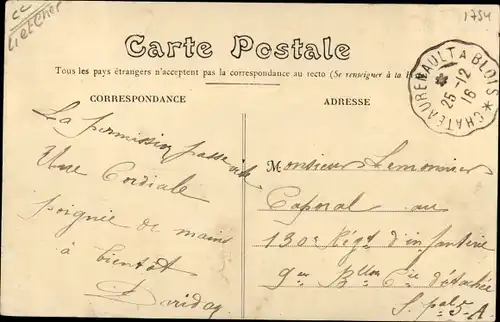 cc
Loir et Cher
1754
Carte Postale
Tous les pays étrangers n'acceptent pas la correspondance au recto (Se renseigner à la
CHATEAURENAULT A BLOIS
25-12
16
CORRESPONDANCE
ADRESSE
La permission passe vite
Une Cordiale
poignée de mains
à bientôt
Monsieur Lemonnier
Caporal au
130e Régt d'infanterie
9em Bllon Cie détachée
S. pal 5-A.